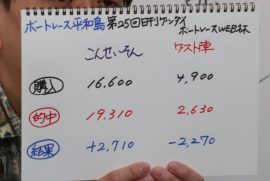 ボートレース平和島 第25回日刊ゲンダイ
ボートレースWEB杯
こんせいそん ゲスト陣
購入 16,600 4,900
的中 19,310 2,630
結果 +2,710 -2,270